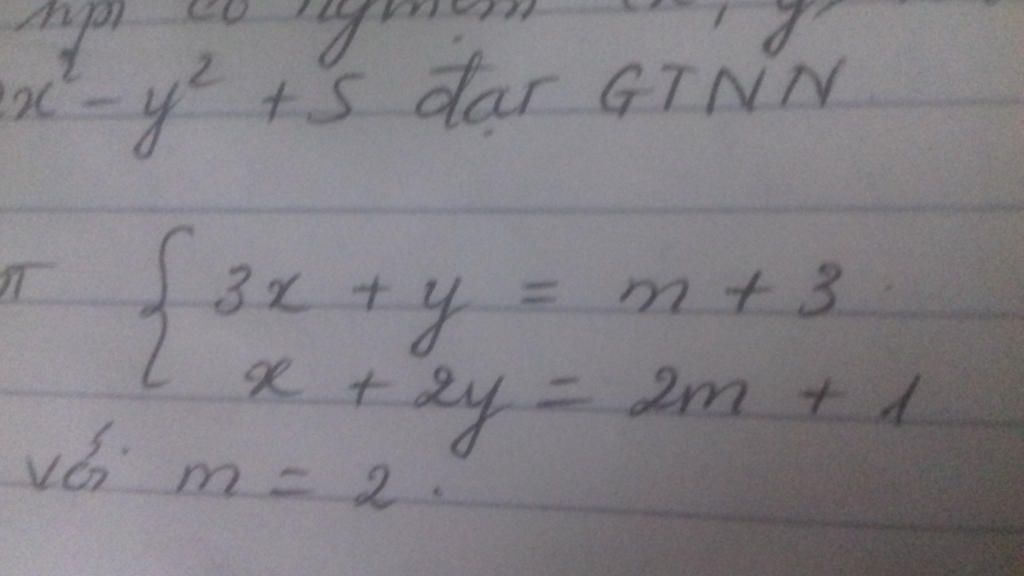 hpt có nghiệm (x, y)
x² - y² + 5 đạt GTNN
3x + y = m + 3
x + 2y = 2m + 1
với m = 2.